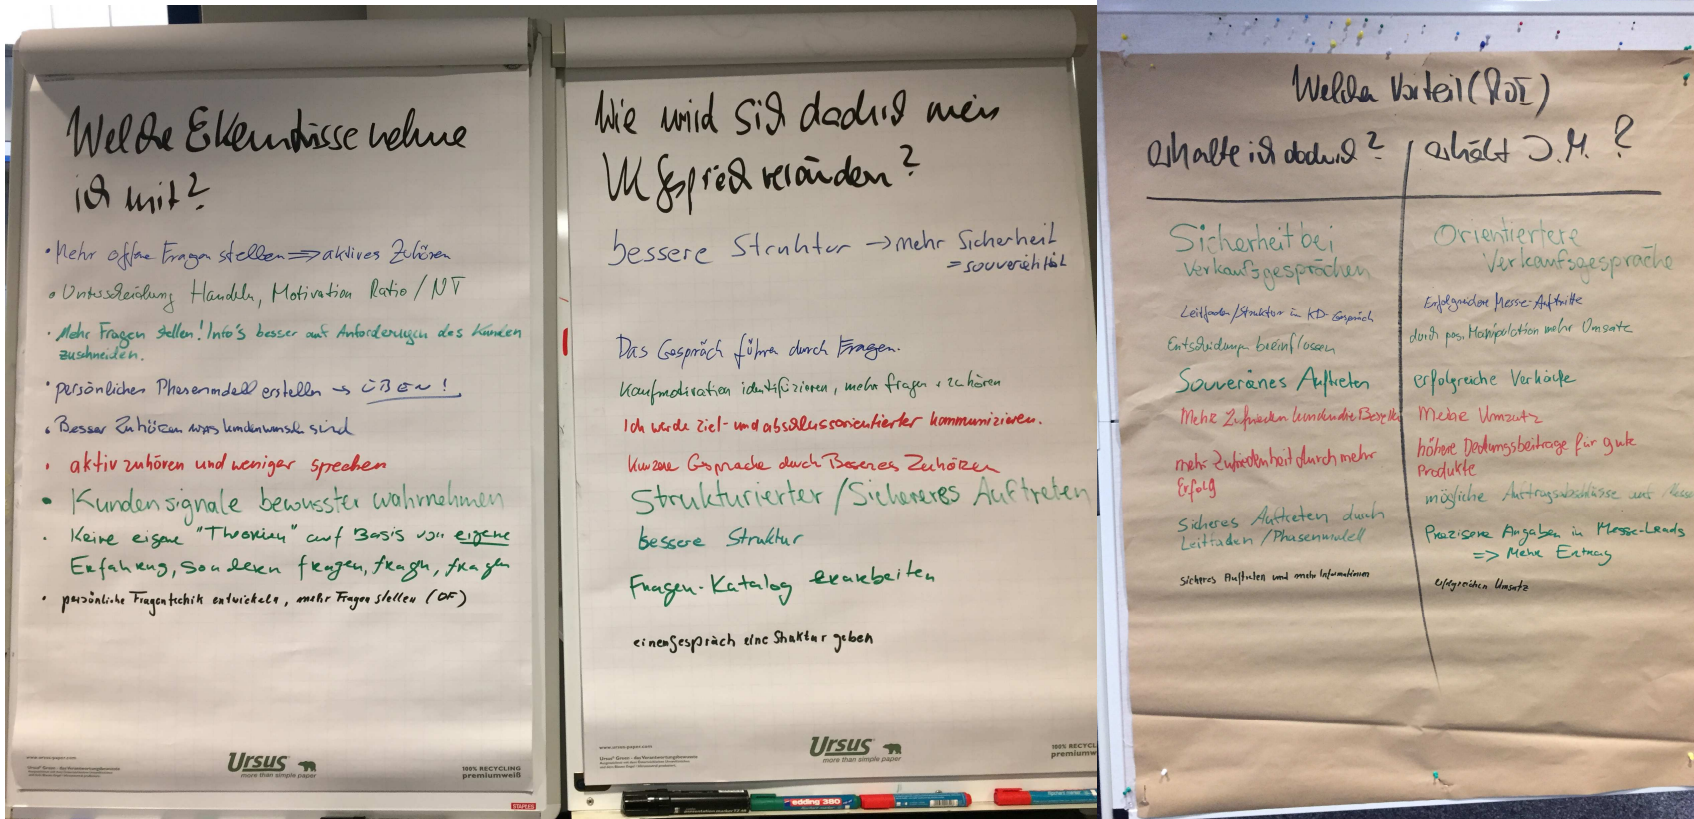 Welche Erkenntnisse nehme
ich mit?
• Mehr offene Fragen stellen => aktives Zuhören
• Unterscheidung Handeln, Motivation Ratio / NT
• Mehr Fragen stellen! Info's besser auf Anforderungen des Kunden
zuschneiden.
• persönliches Phasenmodell erstellen → ÜBEN!
• Besser Zuhören was kundenwunsch sind
• aktiv zuhören und weniger sprechen
• Kundensignale bewusster wahrnehmen
• Keine eigene "Theorien" auf Basis von eigene
Erfahrung, sondern fragen, fragen, fragen
• persönliche Fragentechik entwickeln, mehr Fragen stellen (OF)
www.ursus-paper.com
Ursus
more than simple paper
100% RECYCLING
premiumweiß
STAPLES
Wie wird sich dadurch mein
VK Gespräch verändern?
bessere Struktur → mehr Sicherheit
= souveränität
Das Gespräch führen durch Fragen.
Kaufmotivation identifizieren, mehr fragen + zuhören
Ich werde Ziel- und abschlussorientierter kommunizieren.
Kürzere Gespräche durch Besseres Zuhören
Strukturierter / Sichereres Auftreten
bessere Struktur
Fragen-Katalog erarbeiten
einen Gespräch eine Struktur geben
www.ursus-paper.com
Ursus
more than simple paper
100% RECYCL
premiumw
edding 380
Welchen Vorteil (ROI)
erhalte ich dadurch? erhält J.M.?
Sicherheit bei
Verkaufsgesprächen
Leitfaden/Struktur in KD-Gespräch
Entscheidungen beeinflussen
Souveränes Auftreten
Mehr Zufrieden
mehr Zufriedenheit durch mehr
Erfolg
Sicheres Auftreten durch
Leitfaden / Phasenmodell
sicheres Auftreten und mehr Informationen
Orientiertere
Verkaufsgespräche
Erfolgreichere Messe-Auftritte
durch pos. Manipulation mehr Umsatz
erfolgreiche Verkäufe
Mehr Umsatz
höhere Deckungsbeiträge für gute
Produkte
mögliche Auftragsabschlüsse aus Messe
Präzisere Angaben in Messe-Leads
=> Mehr Ertrag
erfolgreichen Umsatz